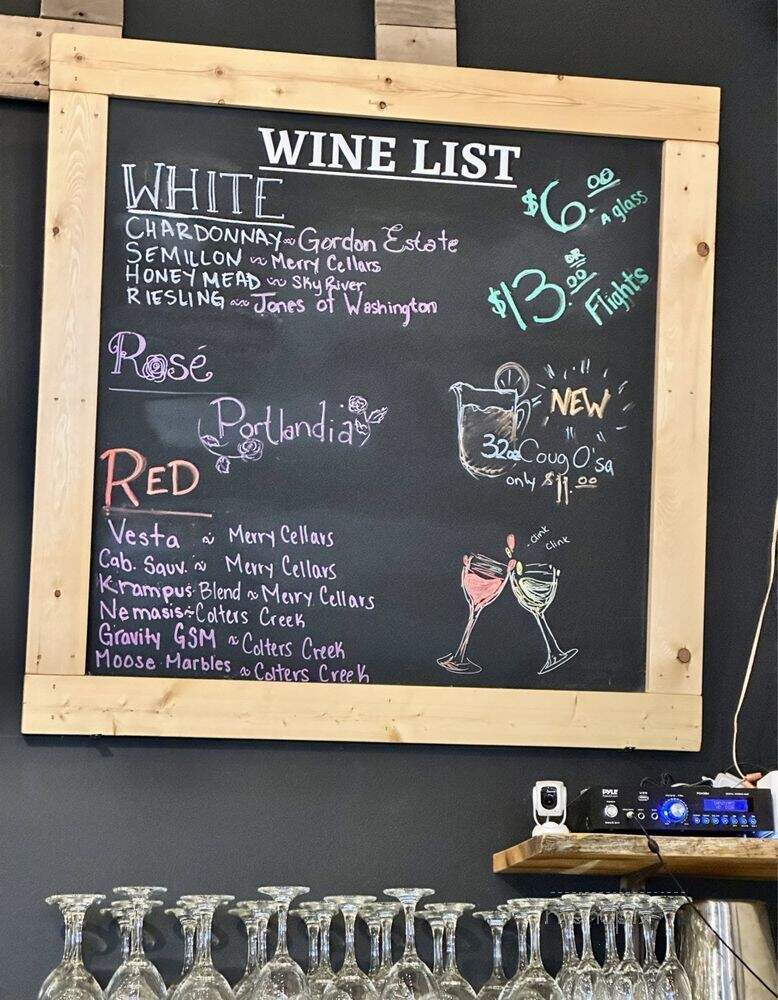 WINE LIST
WHITE
CHARDONNAY ~ Gordon Estate
SEMILLON ~ Merry Cellars
HONEY MEAD ~ Sky River
RIESLING ~ Jones of Washington
$6.00
A glass
OR
$13.00
Flights
Rosé
Portlandia
NEW
32oz Coug O'sa
only $11.00
RED
Vesta ~ Merry Cellars
Cab. Sauv. ~ Merry Cellars
Krampus Blend ~ Merry Cellars
Nemasis ~ Colters Creek
Gravity GSM ~ Colters Creek
Moose Marbles ~ Colters Creek
clink
clink
PYLE